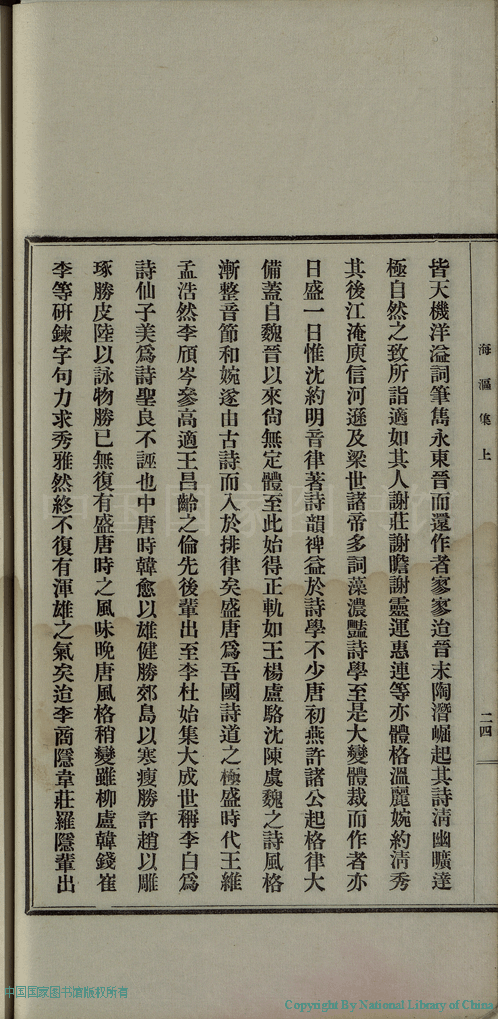 海漚集上
二四
皆天機洋溢詞筆雋永東晉而還作者寥寥迨晉末陶潛崛起其詩清幽曠達
極自然之致所詣適如其人謝莊謝瞻謝靈運惠連等亦體格溫麗婉約清秀
其後江淹庾信河遜及梁世諸帝多詞藻濃豔詩學至是大變體裁而作者亦
日盛一日惟沈約明音律著詩韻裨益於詩學不少唐初燕許諸公起格律大
備蓋自魏晉以來尙無定體至此始得正軌如王楊盧駱沈陳虞魏之詩風格
漸整音節和婉遂由古詩而入於排律矣盛唐爲吾國詩道之極盛時代王維
孟浩然李頎岑參高適王昌齡之倫先後輩出至李杜始集大成世稱李白爲
詩仙子美爲詩聖良不誣也中唐時韓愈以雄健勝郊島以寒瘦勝許趙以雕
琢勝皮陸以詠物勝已無復有盛唐時之風味晚唐風格稍變雖柳盧韓錢崔
李等研鍊字句力求秀雅然終不復有渾雄之氣矣迨李商隱韋莊羅隱輩出
中国国家图书馆版权所有
Copyright By National Library of China